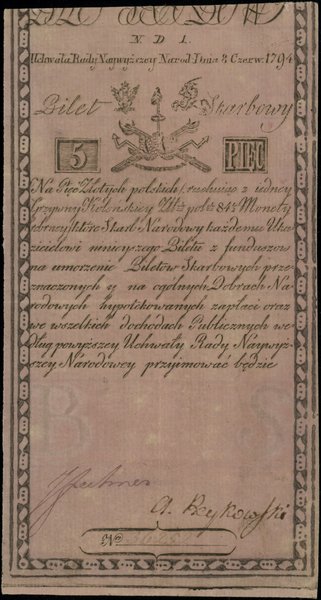 N D 1.
Uchwała Rady Naywyższey Narod. Dnia 8 Czerw. 1794
Bilet Skarbowy
5 PIĘĆ
Na Pięć Złotych polskich, rachuiąc z iedney
Grzywny Kolońskiey Złł pol. 84½ Monety
srebrney, które Skarb Narodowy każdemu Oka-
zicielowi ninieyszego Biletu z funduszów
na umorzenie Biletów Skarbowych prze-
znaczonych y na ogulnych Dobrach Na-
rodowych hypotekowanych zapłaci oraz
we wszelkich dochodach Publicznych we-
dług powyższey Uchwały Rady Naywyż-
szey Narodowey przyjmować będzie
B S
A. Reykowski
No